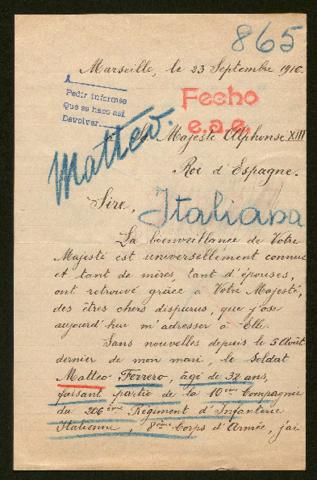 865
Marseille, le 23 Septembre 1916.
Pedir informes
Que se haga así
Devolver
Fecho
e.a.e.
Matteo.
Majesté Alphonse XIII
Roi d'Espagne.
Sire,
Italiana
La bienveillance de Votre
Majesté est universellement connue
et tant de mères, tant d'épouses,
ont retrouvé grâce à Votre Majesté,
des êtres chers disparus, que j'ose
aujourd'hui m'adresser à Elle.
Sans nouvelles depuis le 5 Août
dernier de mon mari, le soldat
Matteo Ferrero, âgé de 32 ans,
faisant partie de la 10ème Compagnie
du 206ème Régiment d'Infanterie
Italienne, 8ème Corps d'Armée, j'ai